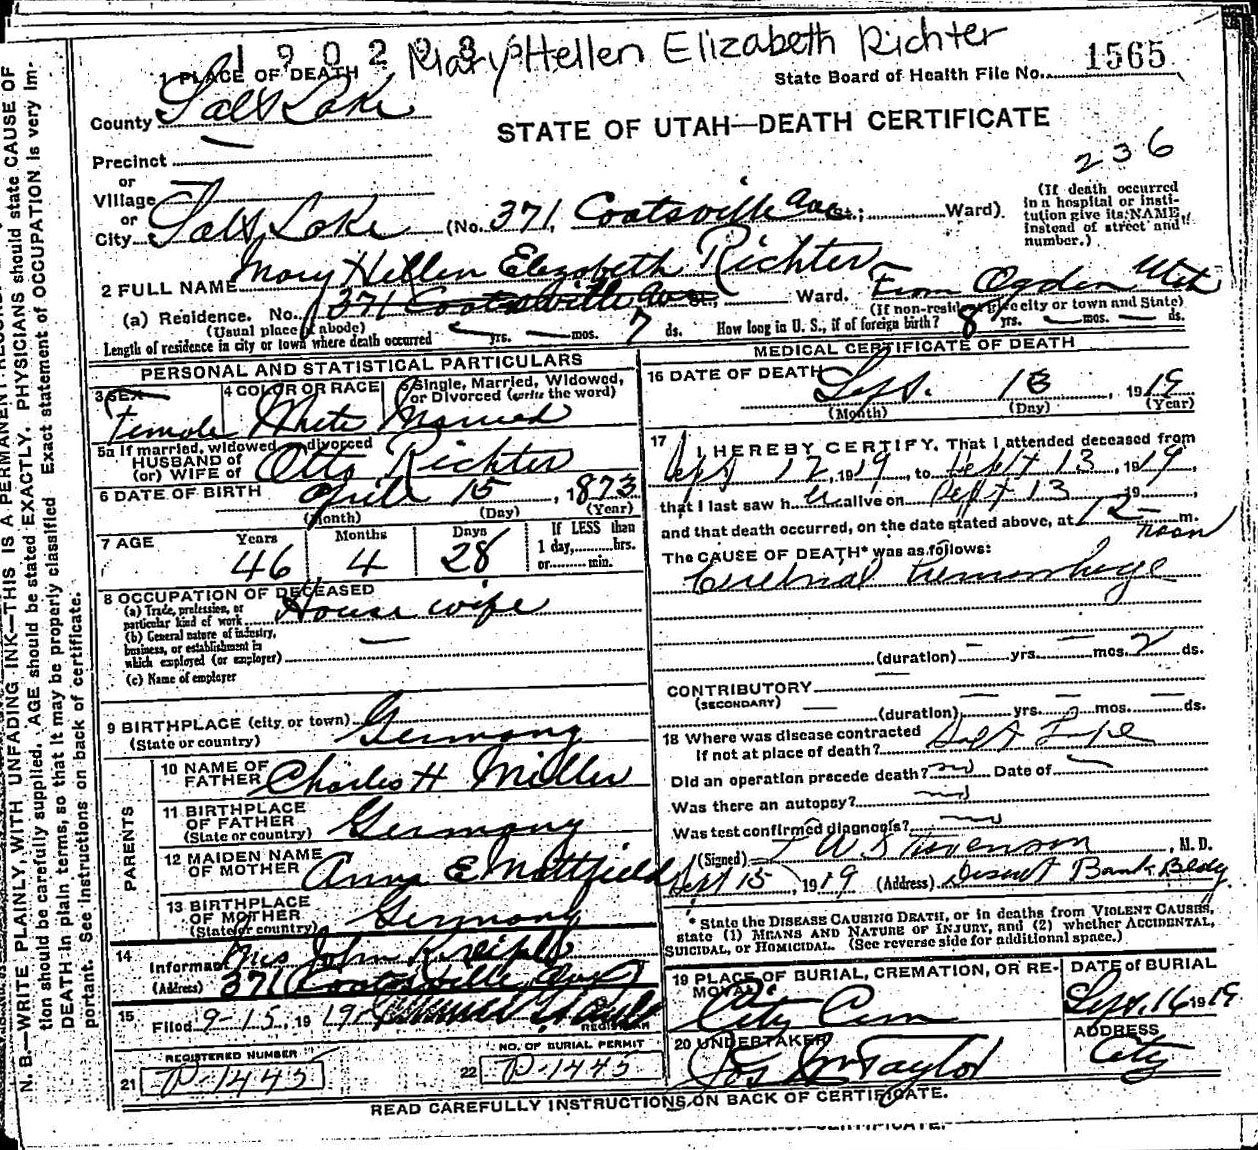 1902983
Mary Hellen Elizabeth Richter
1 PLACE OF DEATH
State Board of Health File No. 1565
County Salt Lake
STATE OF UTAH—DEATH CERTIFICATE
236
Precinct
or
Village
or
City Salt Lake (No. 371, Coatsville Ave St.; Ward)
(If death occurred in a hospital or institution give its NAME, instead of street and number.)
2 FULL NAME Mary Hellen Elizabeth Richter
(a) Residence. No. 371 Coatsville Ave St., Ward. From Ogden Utah
(Usual place of abode) (If non-resident give city or town and State)
Length of residence in city or town where death occurred — yrs. — mos. 7 ds. How long in U. S., if of foreign birth? 8 yrs. — mos. — ds.
PERSONAL AND STATISTICAL PARTICULARS
3 SEX Female
4 COLOR OR RACE White
5 Single, Married, Widowed, or Divorced (write the word) Married
5a If married, widowed or divorced
HUSBAND of
(or) WIFE of Otto Richter
6 DATE OF BIRTH April 15, 1873
(Month) (Day) (Year)
7 AGE Years 46 Months 4 Days 28 If LESS than 1 day, hrs. or min.
8 OCCUPATION OF DECEASED
(a) Trade, profession, or particular kind of work House wife
(b) General nature of industry, business, or establishment in which employed (or employer) —
(c) Name of employer
9 BIRTHPLACE (city or town) Germany
(State or country)
PARENTS
10 NAME OF FATHER Charles H Miller
11 BIRTHPLACE OF FATHER Germany
(State or country)
12 MAIDEN NAME OF MOTHER Anna E Mottfield
13 BIRTHPLACE OF MOTHER Germany
(State or country)
14 Informant Mrs John
(Address) 371 Coatsville Ave
15 Filed 9-15, 1919
REGISTRAR
REGISTERED NUMBER
21 P-1445
NO. OF BURIAL PERMIT
22 P-1445
MEDICAL CERTIFICATE OF DEATH
16 DATE OF DEATH Sept. 13, 1919
(Month) (Day) (Year)
17 I HEREBY CERTIFY, That I attended deceased from
Sept 12, 1919, to Sept 13, 1919,
that I last saw her alive on Sept 13 19
and that death occurred, on the date stated above, at 12— m. noon
The CAUSE OF DEATH* was as follows:
Cerebral Hemorrhage
(duration) — yrs. — mos. 2 ds.
CONTRIBUTORY —
(SECONDARY)
(duration) — yrs. — mos. — ds.
18 Where was disease contracted
If not at place of death?
Did an operation precede death? no Date of —
Was there an autopsy? no
Was test confirmed diagnosis? no
(Signed) T W Stevenson, M. D.
Sept 15, 1919 (Address) Deseret Bank Bldg.
* State the DISEASE CAUSING DEATH, or in deaths from VIOLENT CAUSES, state (1) MEANS AND NATURE OF INJURY, and (2) whether ACCIDENTAL, SUICIDAL, or HOMICIDAL. (See reverse side for additional space.)
19 PLACE OF BURIAL, CREMATION, OR REMOVAL City Cem
DATE of BURIAL Sept. 16 1919
20 UNDERTAKER Jos Wm Taylor
ADDRESS City
READ CAREFULLY INSTRUCTIONS ON BACK OF CERTIFICATE.
N. B.—WRITE PLAINLY, WITH UNFADING INK—THIS IS A PERMANENT RECORD.
tion should be carefully supplied. AGE should be stated EXACTLY. PHYSICIANS should state CAUSE OF
DEATH in plain terms, so that it may be properly classified. Exact statement of OCCUPATION is very im-
portant. See instructions on back of certificate.